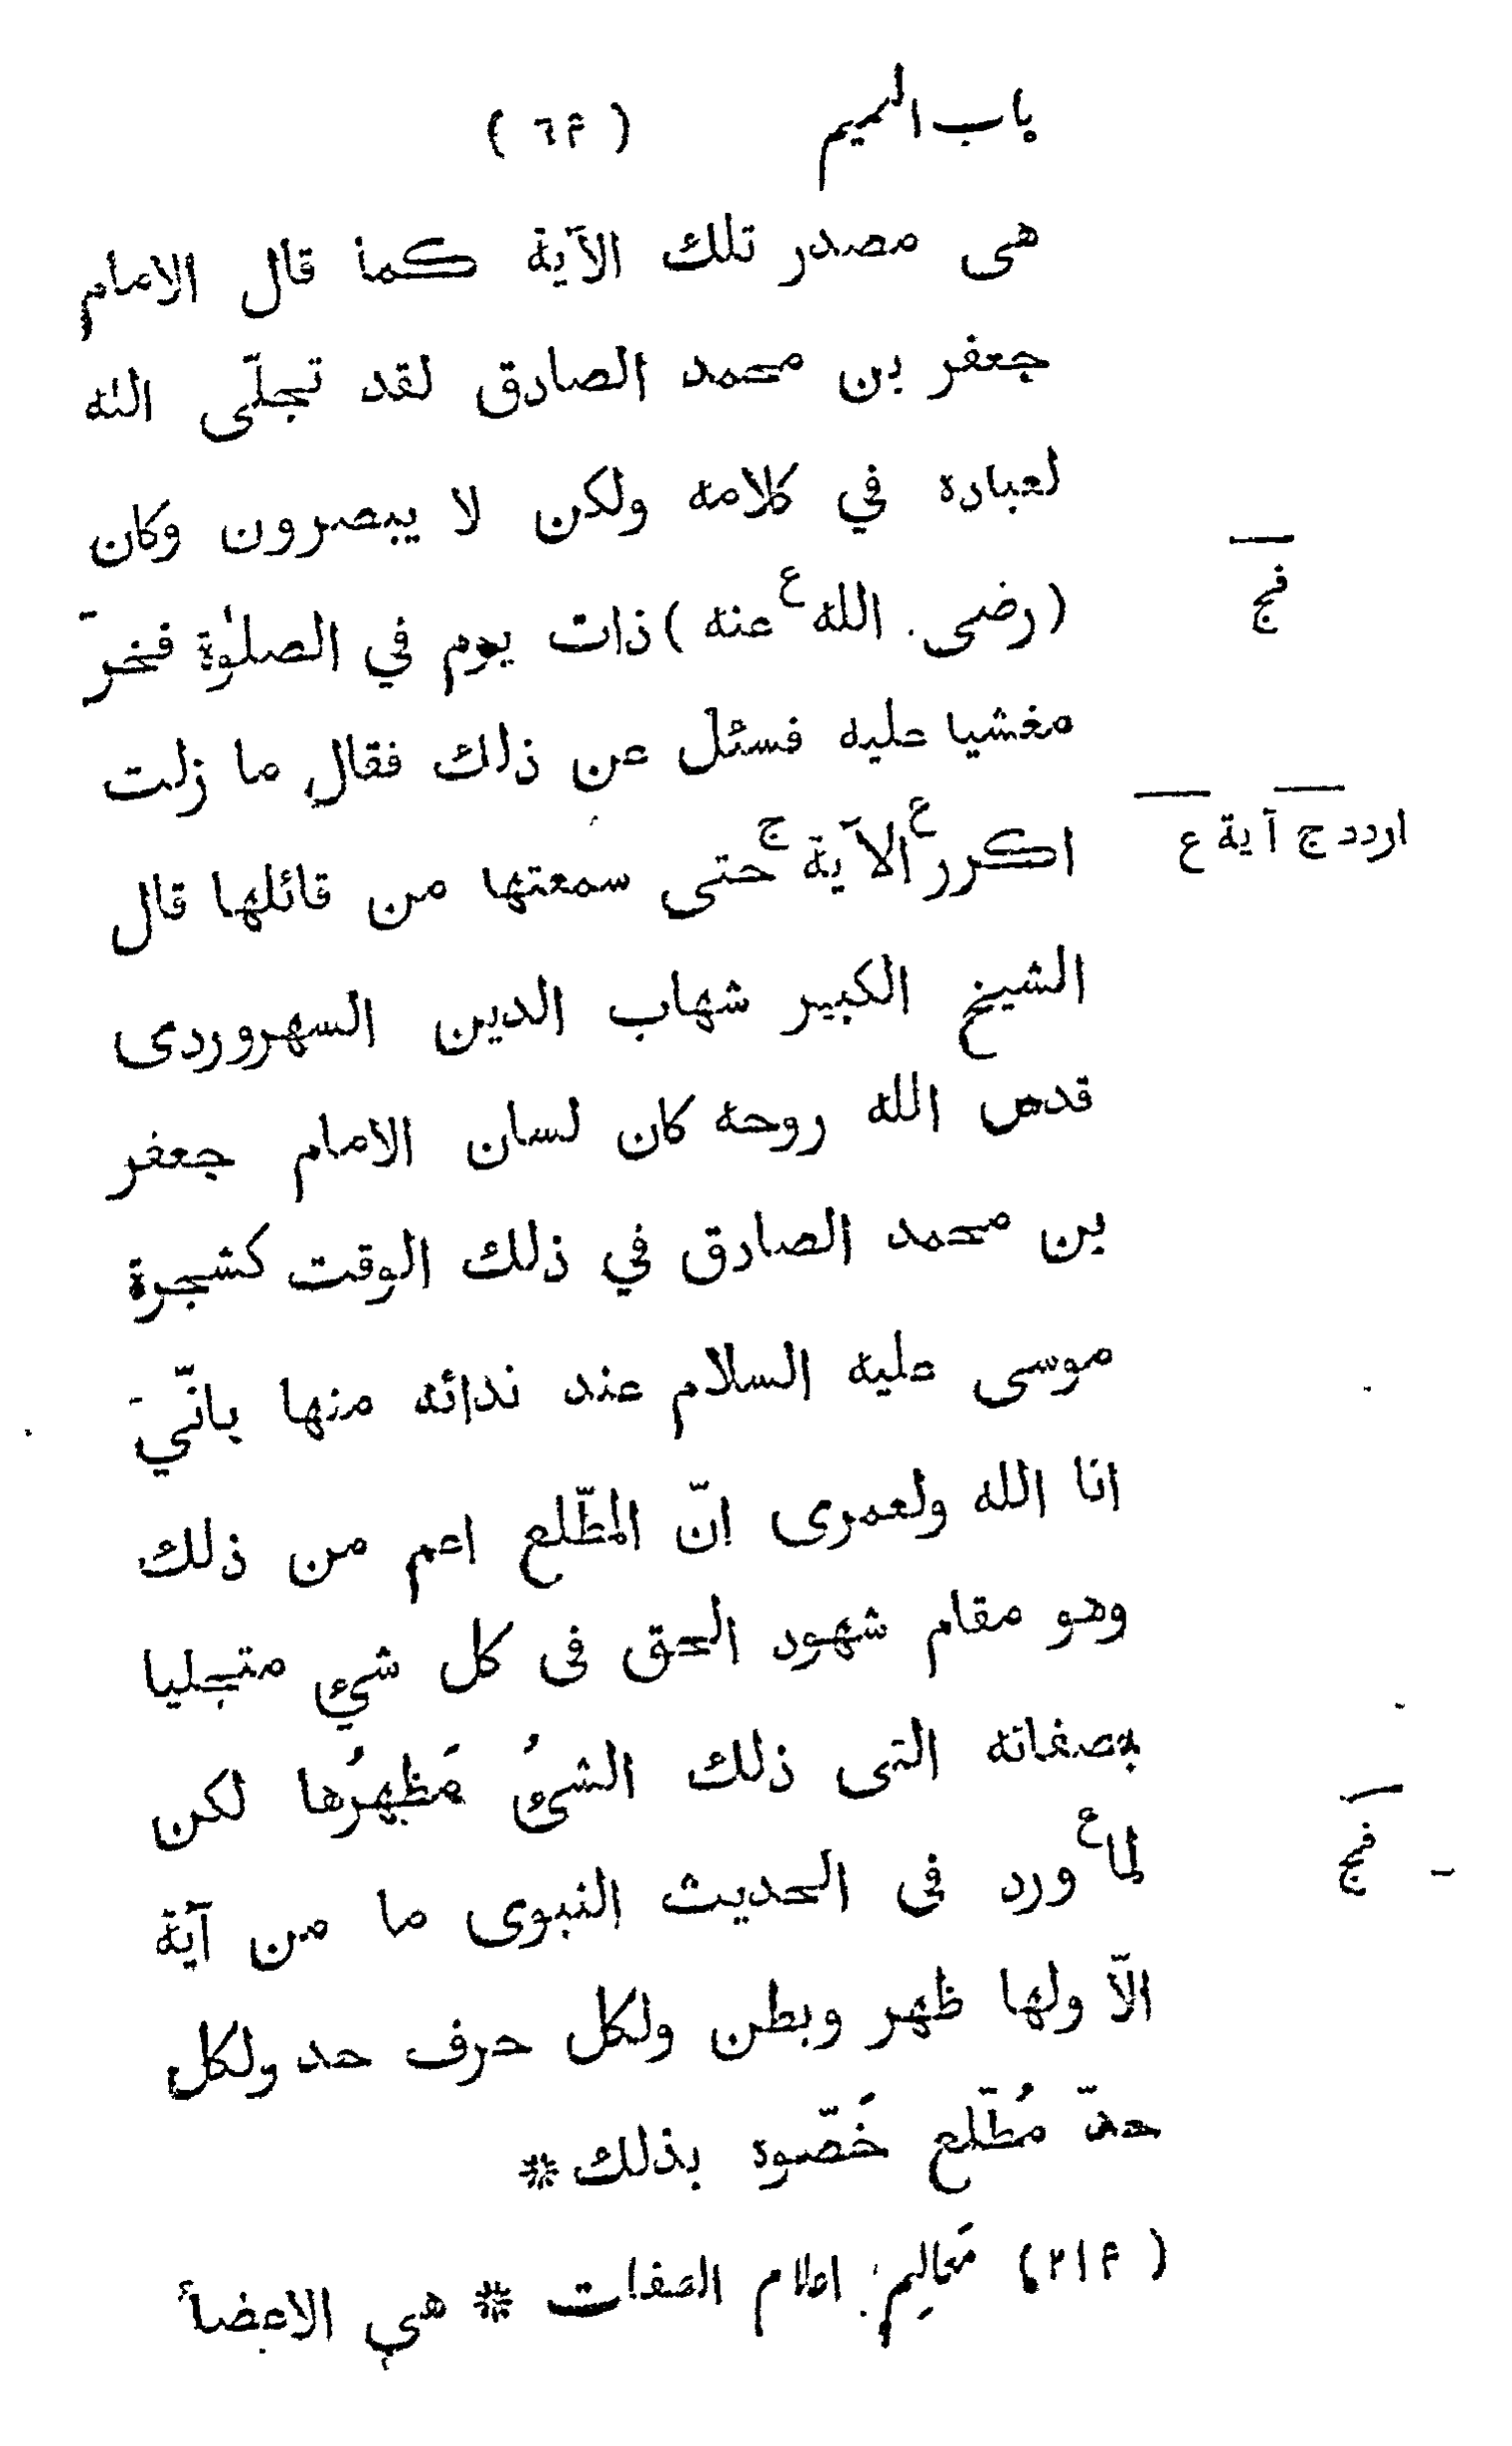 باب الميم ( ٦٤ )
هى مصدر تلك الآية كما قال الامام
جعفر بن محمد الصادق لقد تجلّى الله
لعباده في كلامه ولكن لا يبصرون وكان
(رضى الله ع عنه) ذات يوم في الصلوٰة فخرَّ
فج
مغشيا عليه فسئل عن ذلك فقال ما زلت
اكرر ع الآية ج حتى سمعتها من قائلها قال
اردد ج آية ع
الشيخ الكبير شهاب الدين السهروردى
قدس الله روحه كان لسان الامام جعفر
بن محمد الصادق في ذلك الوقت كشجرة
موسى عليه السلام عند ندائه منها بانّي
انا الله ولعمرى انّ المطّلع اعم من ذلك
وهو مقام شهود الحق فى كل شيء متجليا
بصفاته التى ذلك الشئُ مَظهرُها لكن
لما ع ورد فى الحديث النبوى ما من آية
فج
الّا ولها ظهر وبطن ولكل حرف حد ولكل
حدّ مُطّلع خَصّوه بذلك *
( ٤١٢) مَعالِم اعلام الصفات * هي الاعضاء